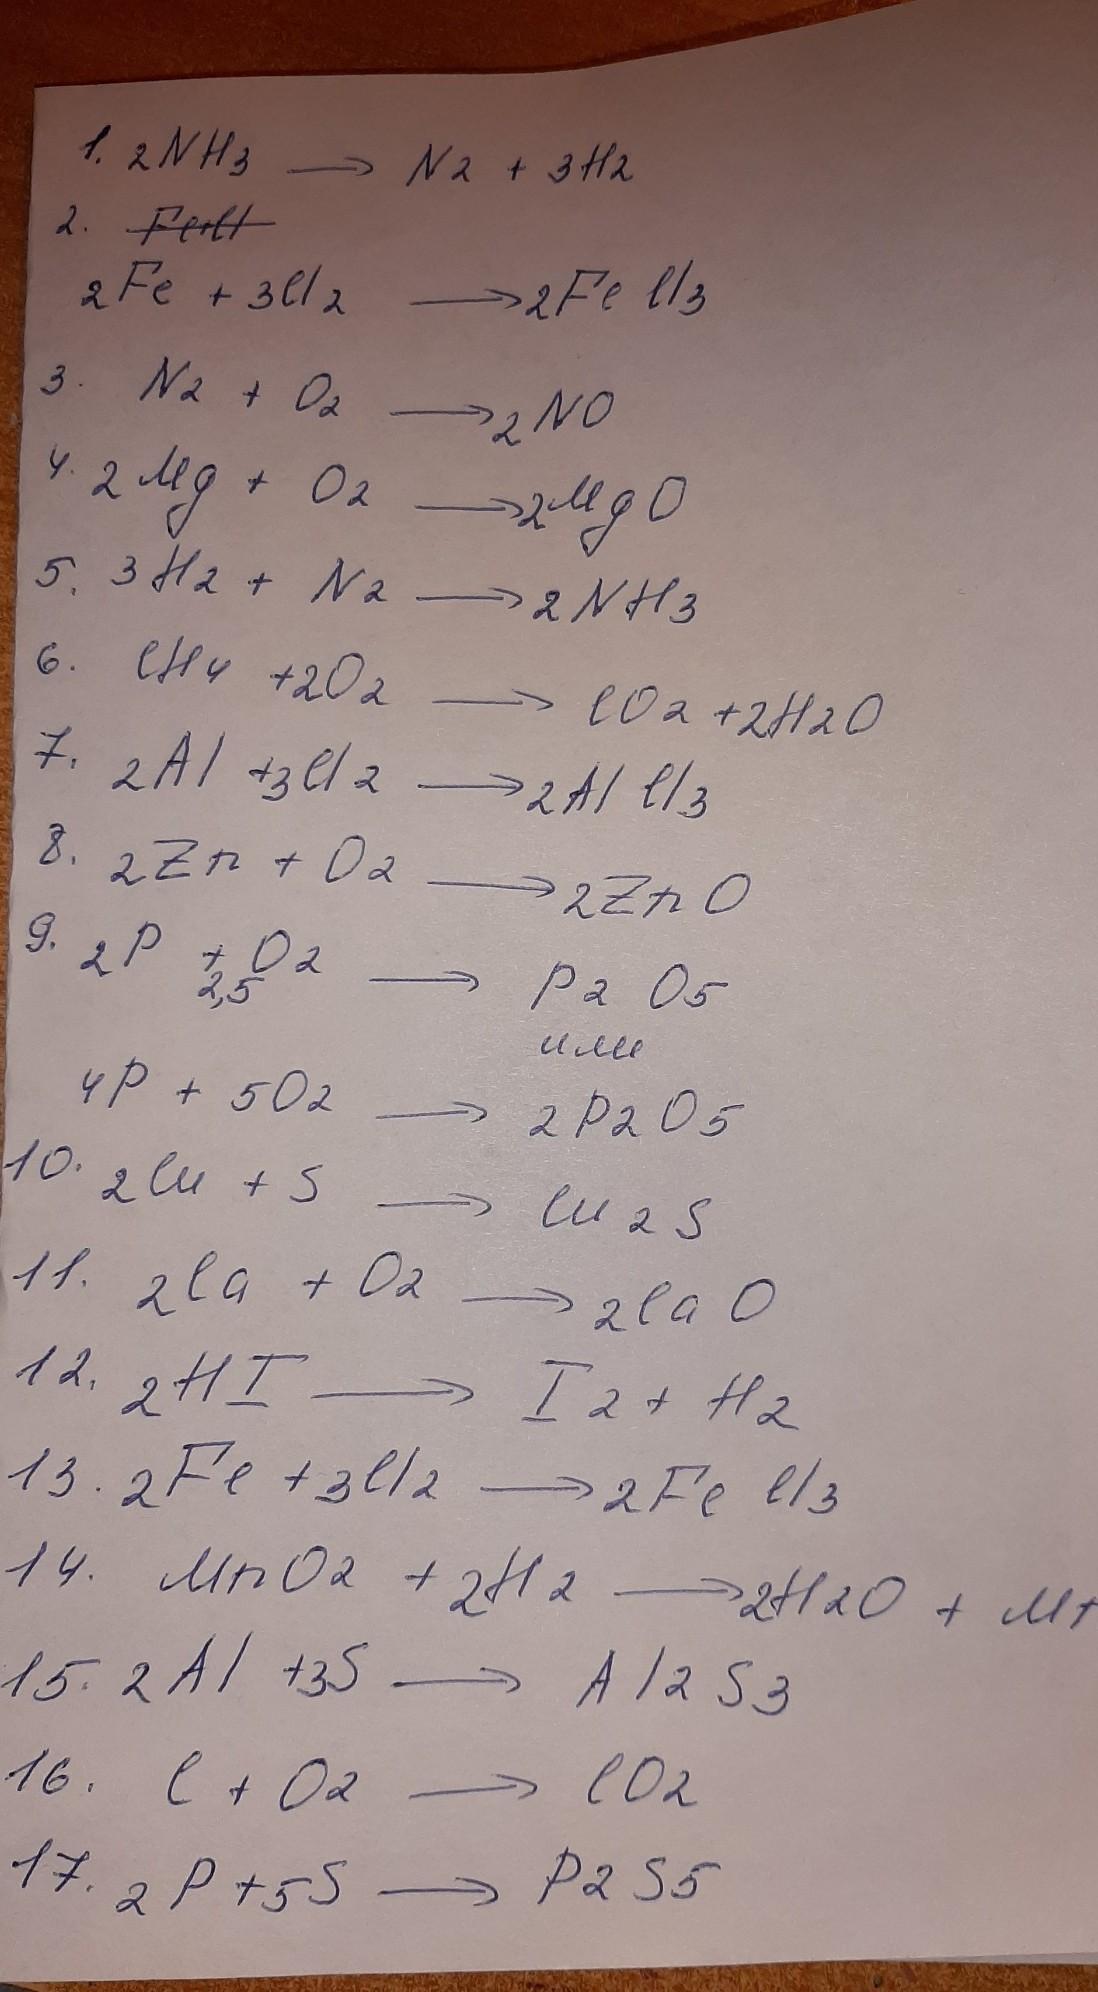 1. 2NH3 → N2 + 3H2
2. Fe+Cl
2Fe + 3Cl2 → 2FeCl3
3. N2 + O2 → 2NO
4. 2Mg + O2 → 2MgO
5. 3H2 + N2 → 2NH3
6. CH4 + 2O2 → CO2 + 2H2O
7. 2Al + 3Cl2 → 2AlCl3
8. 2Zn + O2 → 2ZnO
9. 2P + O2 → P2O5
2,5
или
4P + 5O2 → 2P2O5
10. 2Cu + S → Cu2S
11. 2Ca + O2 → 2CaO
12. 2HI → I2 + H2
13. 2Fe + 3Cl2 → 2FeCl3
14. MnO2 + 2H2 → 2H2O + Mn
15. 2Al + 3S → Al2S3
16. C + O2 → CO2
17. 2P + 5S → P2S5